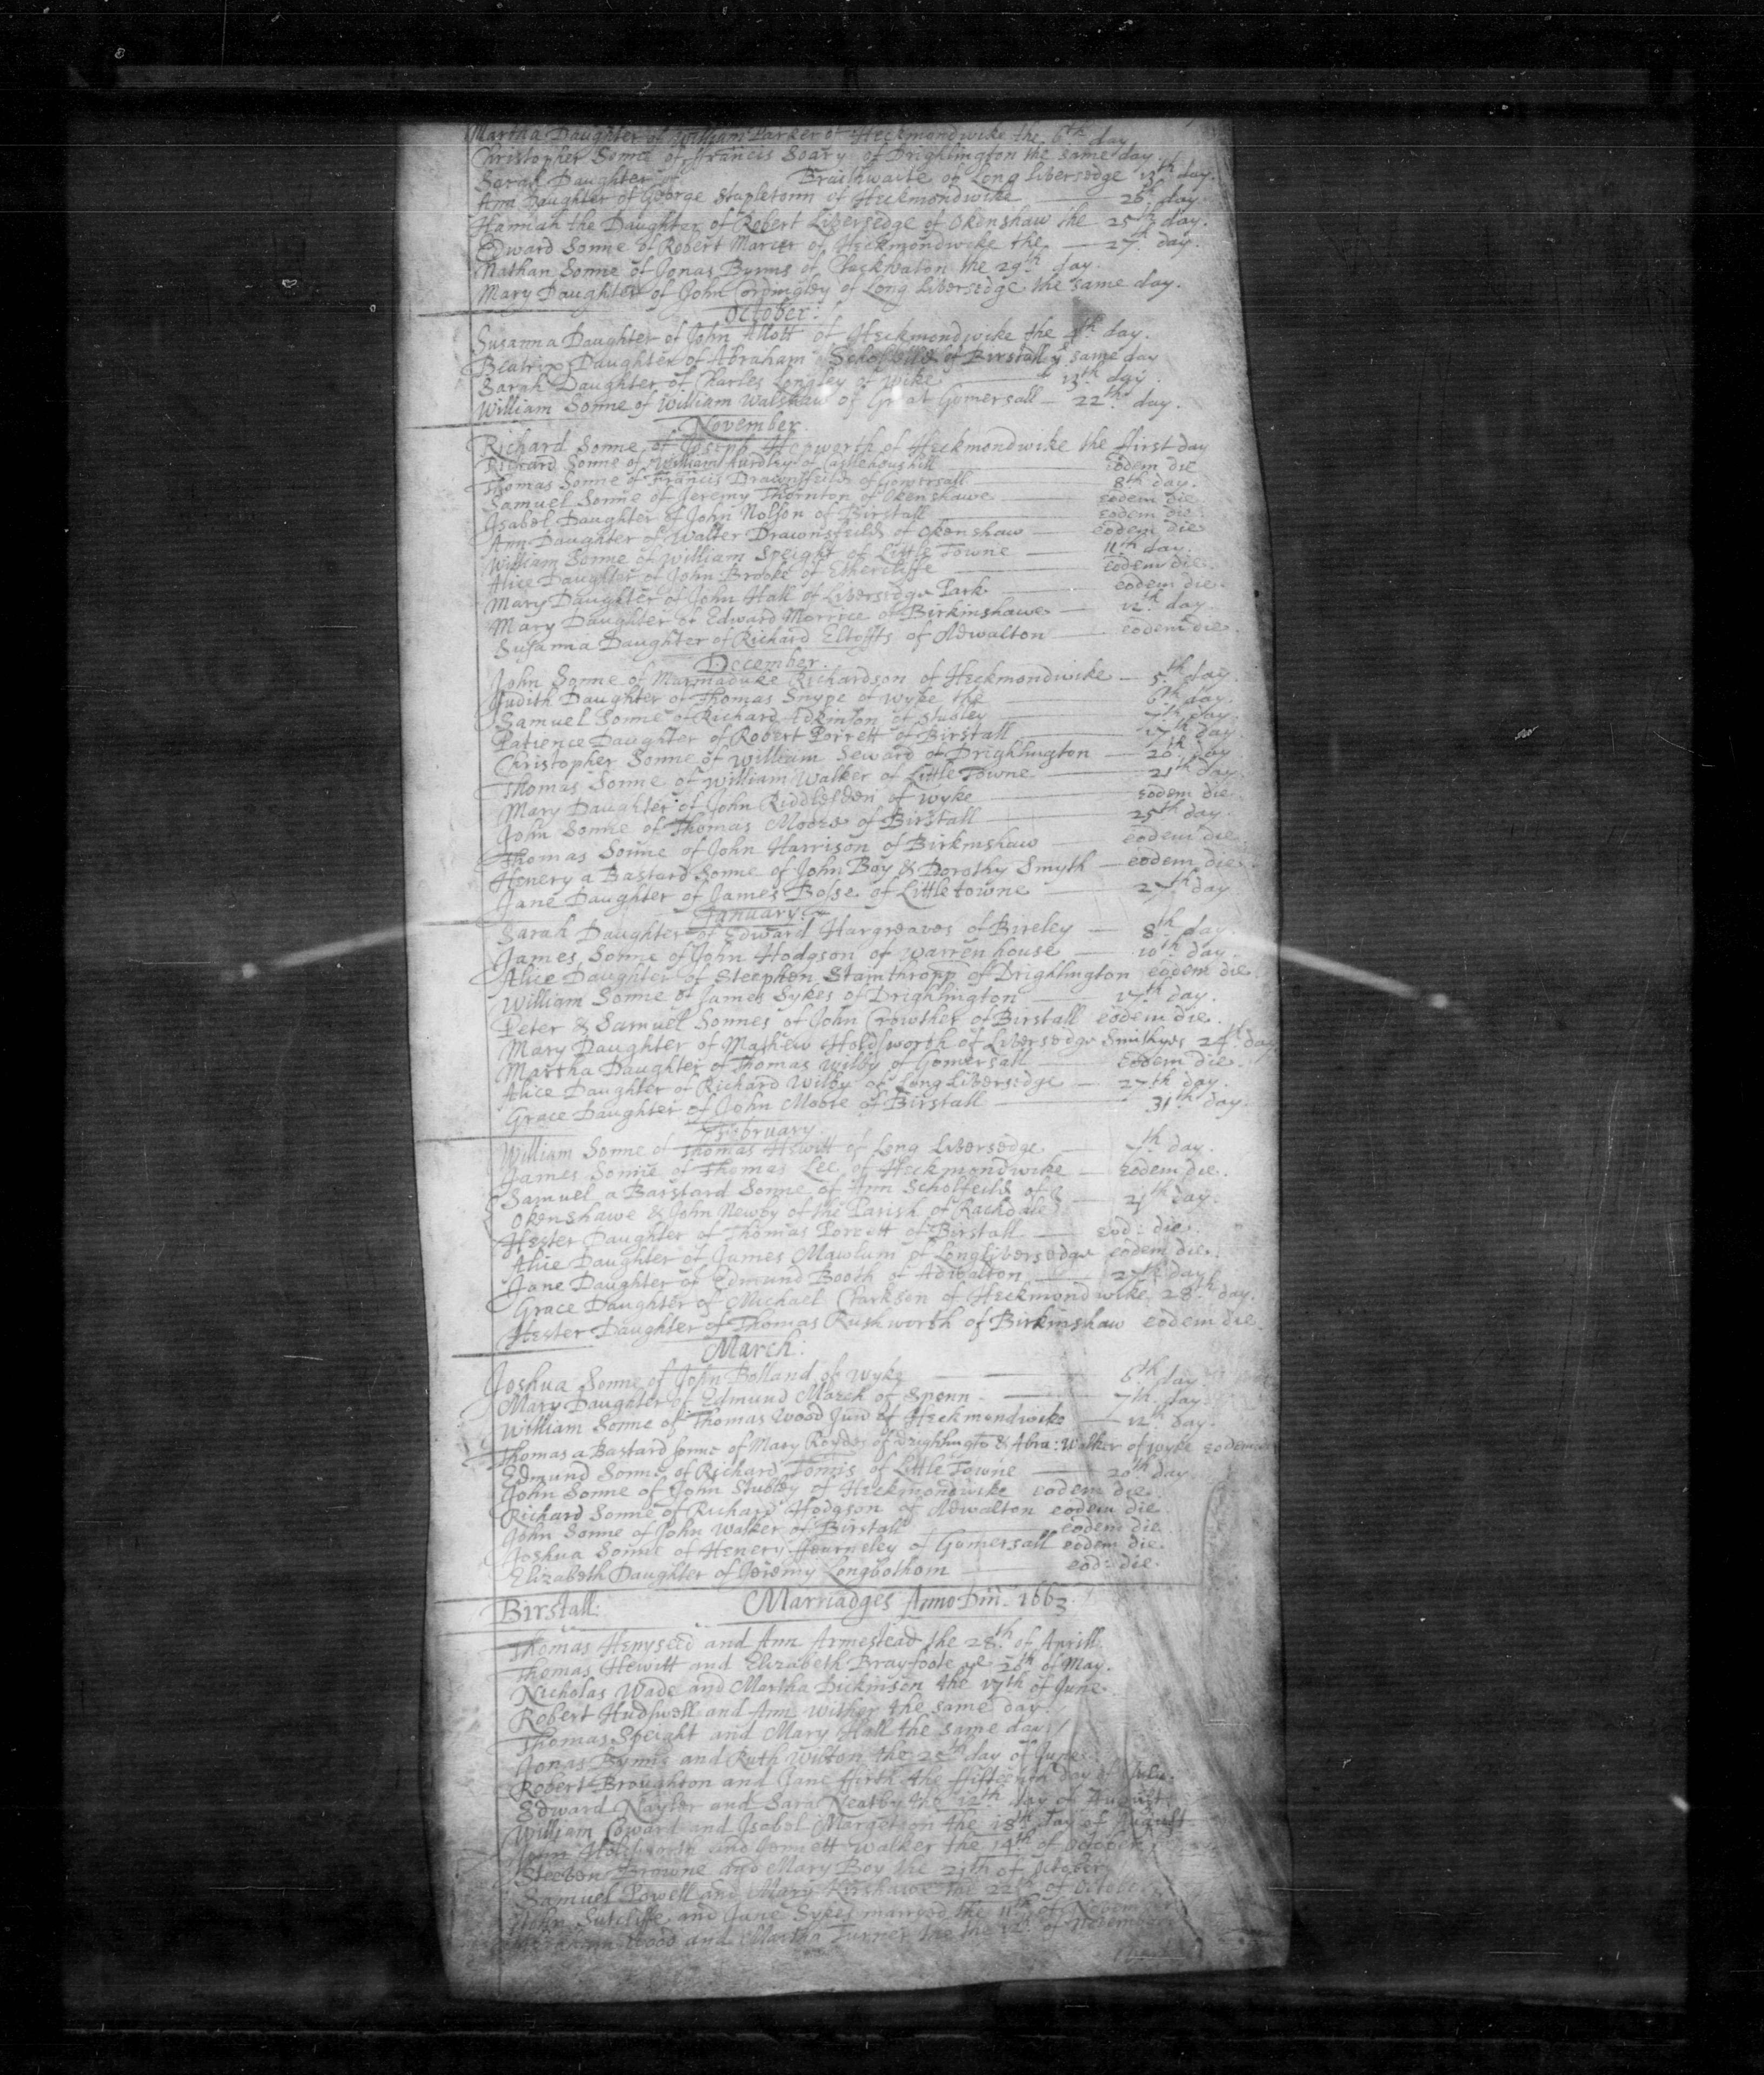 Martha Daughter of William Parker of Heckmondwike the 6th day
Christopher Sonne of Francis Soary of Drighlington the same day.
Sarah Daughter of Braithwaite of Long Liversedge 13th day.
Ann Daughter of George Stapletonn of Heckmondwike 20th day.
Hannah the Daughter of Robert Liversedge of Okenshaw the 25th day.
Edward Sonne of Robert Marcer of Heckmondwike the 27th day.
Nathan Sonne of Jonas Byms of Cleckheaton the 29th day.
Mary Daughter of John Cordingley of Long Liversedge the same day.
October:
Susanna Daughter of John Allott of Heckmondwike the 4th day.
Beatrix Daughter of Abraham of Birstall ye same day
Sarah Daughter of Charles Longley of Wike 13th day.
William Sonne of William Walshaw of Great Gomersall 22th day.
November.
Richard Sonne of Joseph Hepworth of Heckmondwike the ffirst day
Richard Sonne of William of eodem die
Thomas Sonne of Francis of Gomersall 8th day.
Samuel Sonne of Jeremy Thornton of Okenshawe eodem die
Isabel Daughter of John Nolson of Birstall eodem die
Ann Daughter of Walter Drawnsfeild of Okenshaw eodem die
William Sonne of William Speight of Little Towne 11th day.
Alice Daughter of John Brooke of Ethercliffe eodem die.
Mary Daughter of John Hall of Liversedge Park eodem die.
Mary Daughter of Edward Morrice of Birkinshawe 12th day
Susanna Daughter of Richard Eltoffts of Adwalton eodem die.
December.
John Sonne of Marmaduke Richardson of Heckmondwike 5th day.
Judith Daughter of Thomas Snype of Wyke the 6th day.
Samuel Sonne of Richard Adkinson of Stubley 7th day.
Patience Daughter of Robert Porrett of Birstall 17th day.
Christopher Sonne of William Seward of Drighlington 20th day
Thomas Sonne of William Walker of Little Towne 21th day
Mary Daughter of John Riddlesden of Wyke eodem die
John Sonne of Thomas Moore of Birstall 25th day.
Thomas Sonne of John Harrison of Birkinshaw eodem die
Henery a Bastard Sonne of John Boy & Dorothy Smyth eodem die.
Jane Daughter of James Bolse of Littletowne 27th day
January.
Sarah Daughter of Edward Hargreaves of Bireley 8th day.
James Sonne of John Hodgson of Warrenhouse 10th day.
Alice Daughter of Steephen Stainthropp of Drighlington eodem die.
William Sonne of James Sykes of Drighlington 17th day.
Peter & Samuel Sonnes of John Crowther of Birstall eodem die.
Mary Daughter of Mathew Holdsworth of Liversedge Smithyes 24th day
Martha Daughter of Thomas Wilby of Gomersall eodem die.
Alice Daughter of Richard Wilby of Long Liversedge 27th day.
Grace Daughter of John Moore of Birstall 31th day.
February.
William Sonne of Thomas Hewitt of Long Liversedge 7th day.
James Sonne of Thomas Lee of Heckmondwike eodem die.
Samuel a Barstard Sonne of Ann Scholfeild of
Okenshawe & John Newby of the Parish of Rachdale 21th day.
Hester Daughter of Thomas Porrett of Birstall eod: die.
Alice Daughter of James Mawlum of Longliversedge eodem die.
Jane Daughter of Edmund Booth of Adwalton 27th day
Grace Daughter of Michael Clarkson of Heckmondwike 28th day.
Hester Daughter of Thomas Rushworth of Birkinshaw eodem die.
March:
Joshua Sonne of John Bolland of Wyke 6th day
Mary Daughter of Edmund March of Spenn 7th day.
William Sonne of Thomas Wood Junr of Heckmondwike 12th day.
Thomas a Bastard sonne of Mary Roydes of Drighlingto & Abra: Walker of Wyke eodem
Edmund Sonne of Richard Tomis of Little Towne 20th day
John Sonne of John Stubley of Heckmondwike eodem die.
Richard Sonne of Richard Hodgson of Adwalton eodem die
John Sonne of John Walker of Birstall eodem die
Joshua Sonne of Henery ffourneley of Gomersall eodem die.
Elizabeth Daughter of Jeremy Longbothom eod: die.
Birstall: Marriadges Anno Dni. 1663
Thomas Henyseed and Ann Armestead the 28th of Aprill
Thomas Hewitt and Elizabeth Brayfoote ye 20th of May.
Nicholas Wade and Martha Dickinson the 17th of June
Robert Hudswell and Ann Wither the same day.
Thomas Speight and Mary Hall the same day
Jonas Byms and Ruth Wilson the 25th day of June
Robert Broughton and Jane ffirth the ffifteenth day of July.
Edward Nayler and Sara Neatby the 12th day of August
William Coward and Isabel Margetson the 18th day of August
John Holdsworth and Jennett Walker the 14th of October
Steeven Browne and Mary Boy the 21th of October
Samuel Powell and Mary Kershawe the 22th of October
John Sutcliffe and Jane Sykes marryed the 11th of November
Wood and Martha Turner the the 12th of November